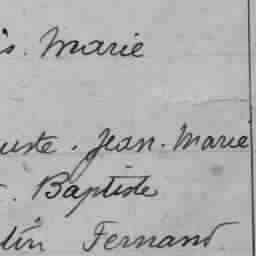 is. Marie
uste. Jean. Marie
. Baptiste
tin Fernand